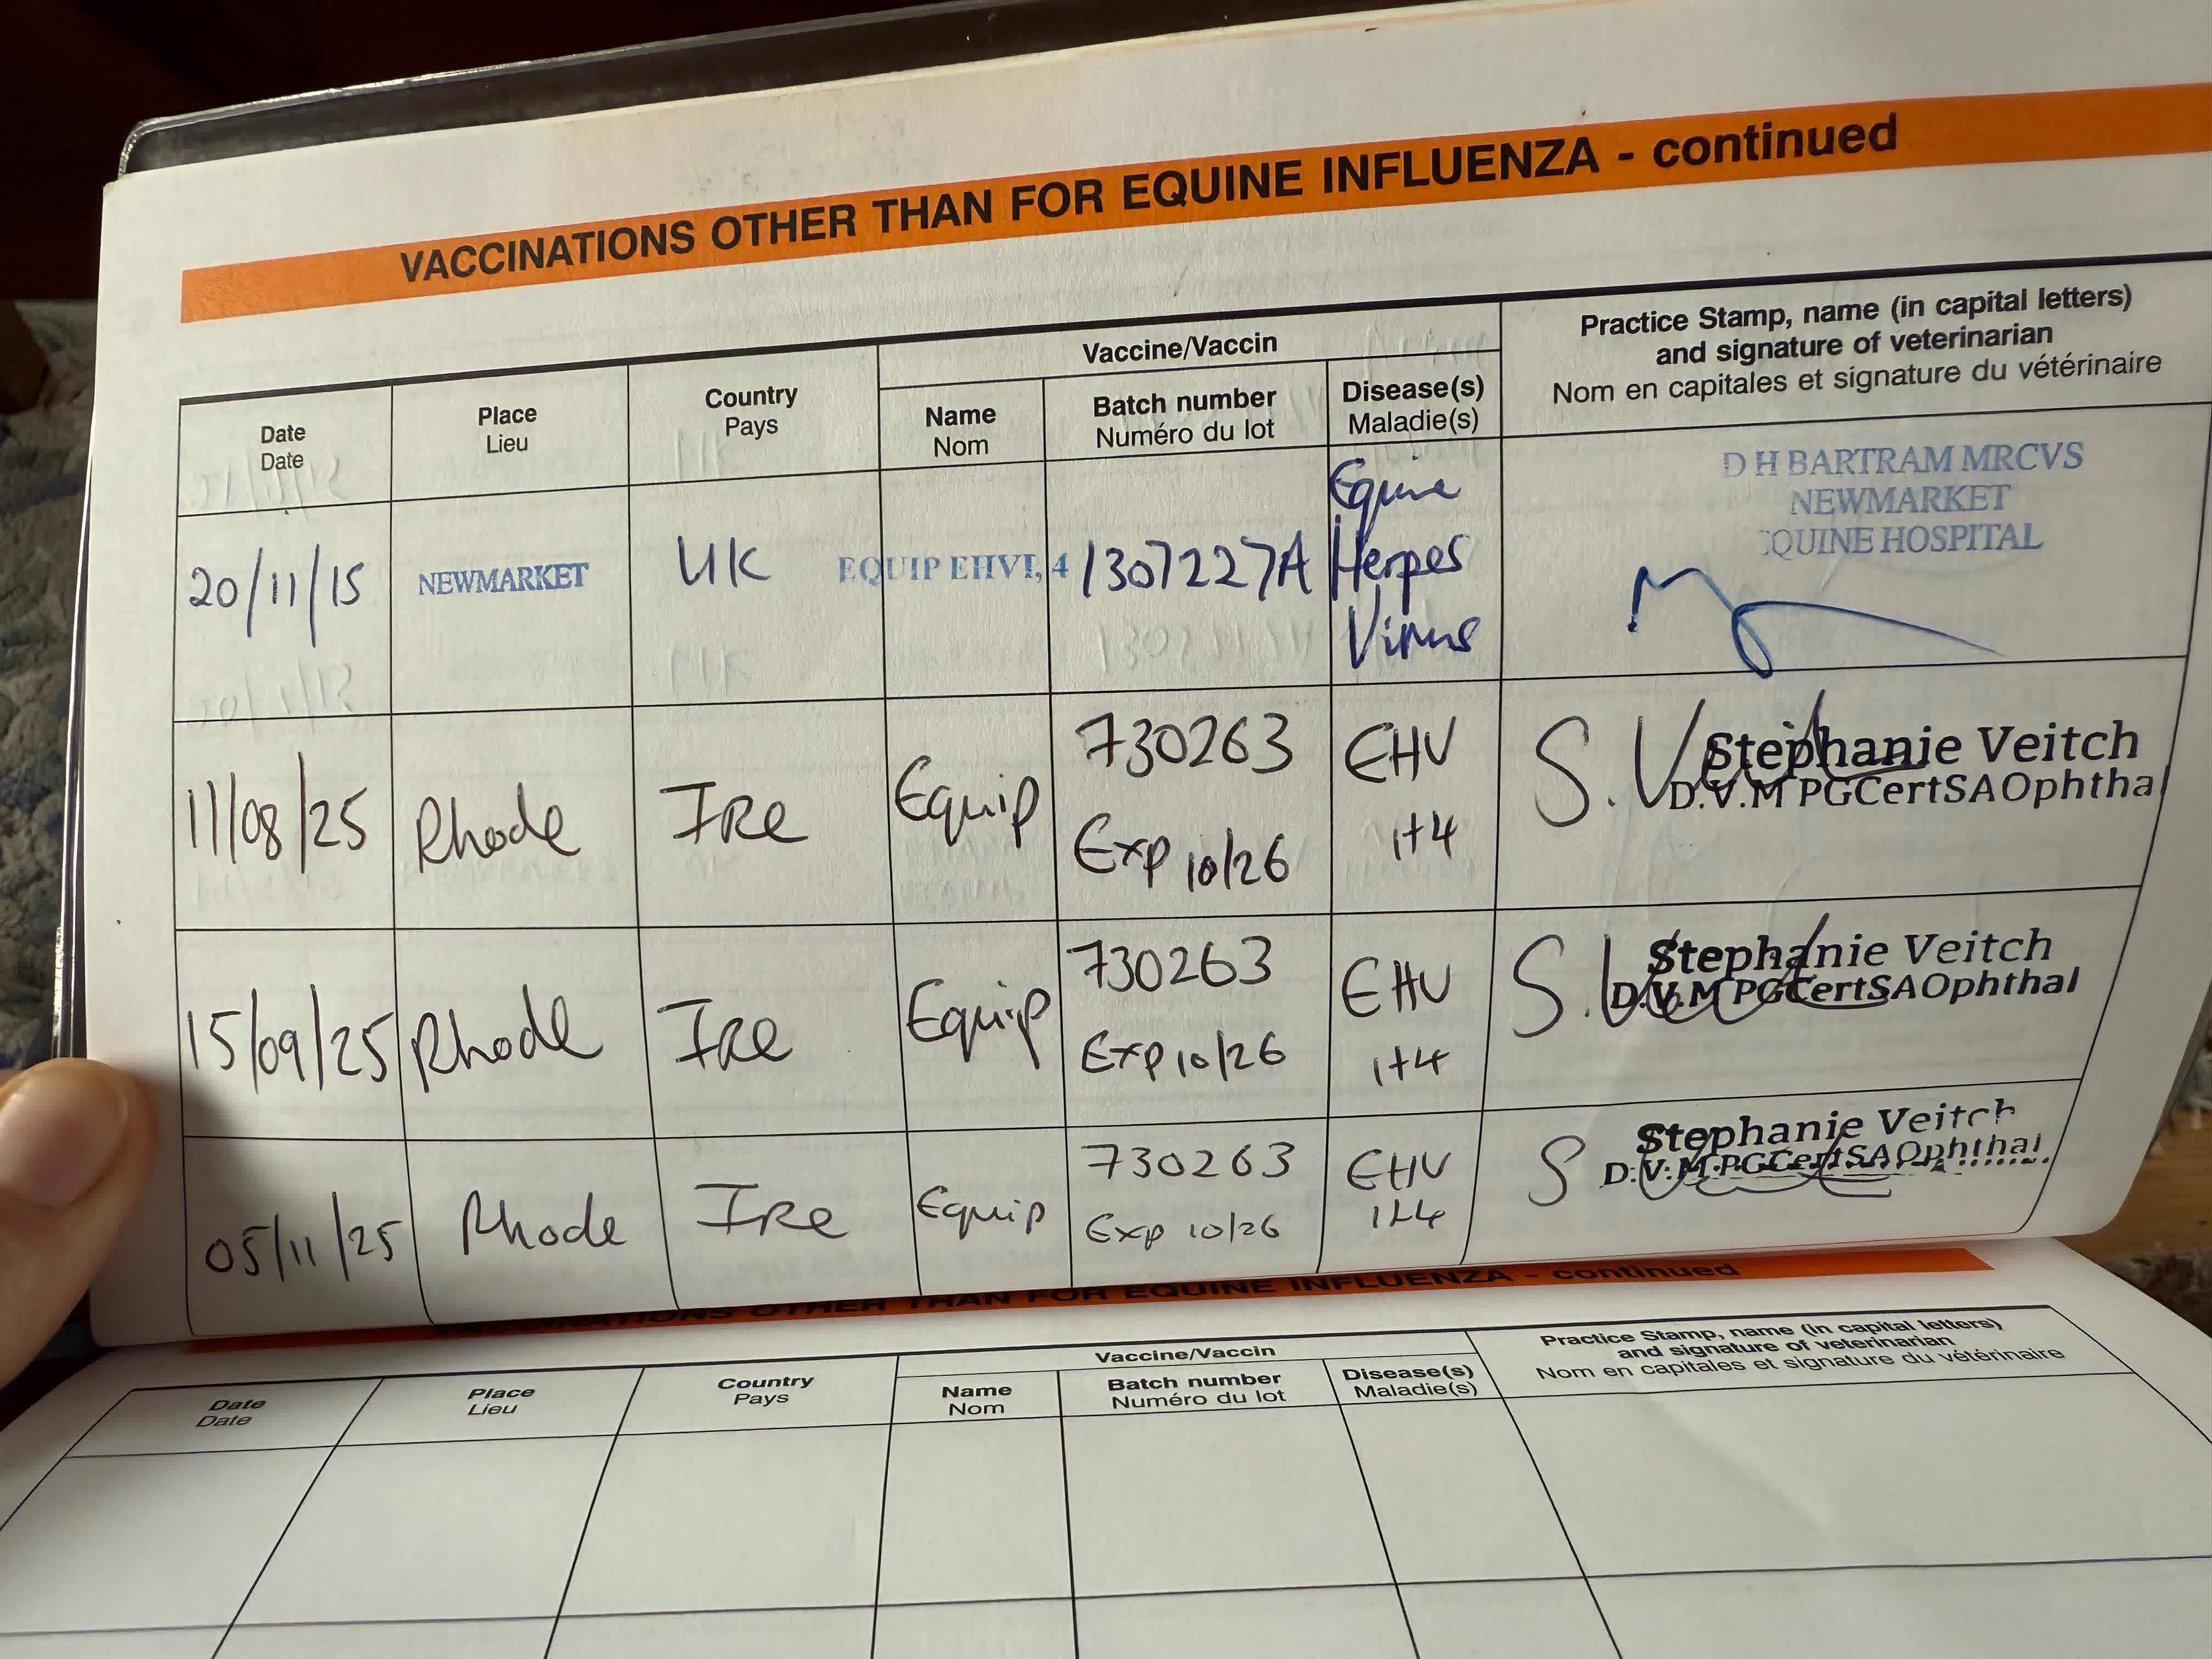 VACCINATIONS OTHER THAN FOR EQUINE INFLUENZA - continued
Date
Date
Place
Lieu
Country
Pays
Vaccine/Vaccin
Name
Nom
Batch number
Numéro du lot
Disease(s)
Maladie(s)
Practice Stamp, name (in capital letters)
and signature of veterinarian
Nom en capitales et signature du vétérinaire
20/11/15
NEWMARKET
UK
EQUIP EHV1, 4
1307227A
Equine
Herpes
Virus
D H BARTRAM MRCVS
NEWMARKET
EQUINE HOSPITAL
11/08/25
Rhode
IRe
Equip
730263
Exp 10/26
EHV
1+4
S. Veitch
Stephanie Veitch
D.V.M PGCertSAOphthal
15/09/25
Rhode
IRe
Equip
730263
Exp 10/26
EHV
1+4
S. Veitch
Stephanie Veitch
D.V.M PGCertSAOphthal
05/11/25
Rhode
IRe
Equip
730263
Exp 10/26
EHV
1+4
S
Stephanie Veitch
D.V.M PGCertSAOphthal
VACCINATIONS OTHER THAN FOR EQUINE INFLUENZA - continued
Date
Date
Place
Lieu
Country
Pays
Vaccine/Vaccin
Name
Nom
Batch number
Numéro du lot
Disease(s)
Maladie(s)
Practice Stamp, name (in capital letters)
and signature of veterinarian
Nom en capitales et signature du vétérinaire